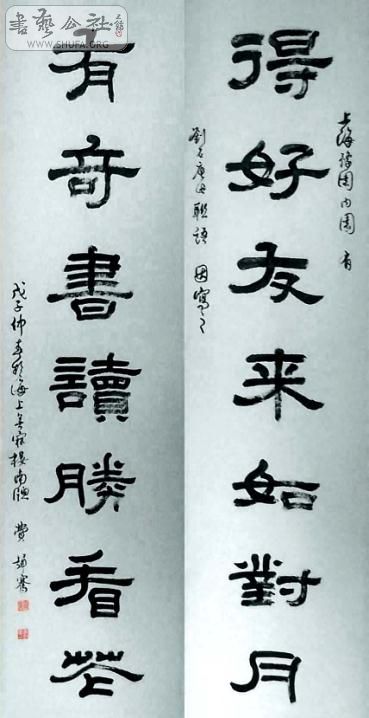 得好友来如對月
上海豫園内園 有
劉石庵 聯語 因寫之
有奇書讀勝看花
戊子仲春於海上 南牕 費
書藝公社
WWW.SHUFA.ORG